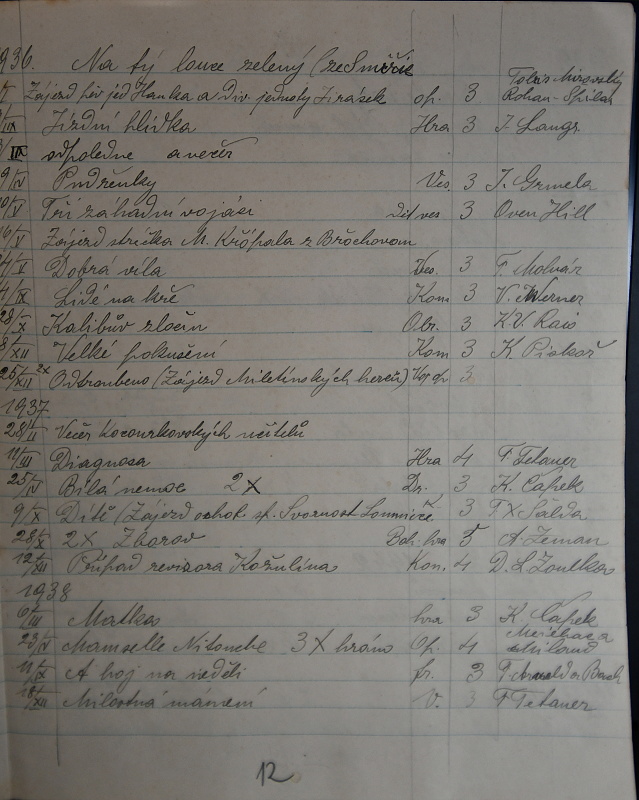 1936. Na tý louce zelený (ze Smiřic
Tobis Mirovský
Zájezd pěv. jed. Hanka a div. jednoty Jirásek op. 3 Rohan-Špilar
Jízdní hlídka Hra 3 F. Langr
odpoledne a večer
9/IV Pudřenky Ves. 3 J. Grmela
10/V Tři záhadní vojáci det ves 3 Oven Hill
Zájezd strýčka M. Křópala z Břochovan
Dobrá víla Ves. 3 F. Molnár
4/IX Lidé na kře Kom 3 V. Werner
28/X Kalibův zločin Obr. 3 K.V. Rais
8/XII Velké pokušení Kom 3 K Piskoř
25/XII 2x Odtroubeno (Zájezd Miletínských herců) Voj op 3
1937
28/II Večer Kocourkovských učitelů
11/III Diagnosa Hra 4 F Tetauer
25/IV Bílá nemoc 2X Dr. 3 K. Čapek
9/X Dítě (Zájezd ochot. sp. Svornost Lomnice 3 F.X. Šalda
28/X 2X Zborov Boh. hra 5 A. Zeman
12/XII Případ revizora Kožulina Kom. 4 D. L. Zoulkas
1938
6/III Matka hra 3 K. Čapek
23/IV Mamselle Nitouche 3X hráno Op. 4 Meilhac a Miland
11/IX A hoj na neděli fr. 3 F. Arnold a Bach
18/XII Milostná mámení V. 3 F Tetauer
12